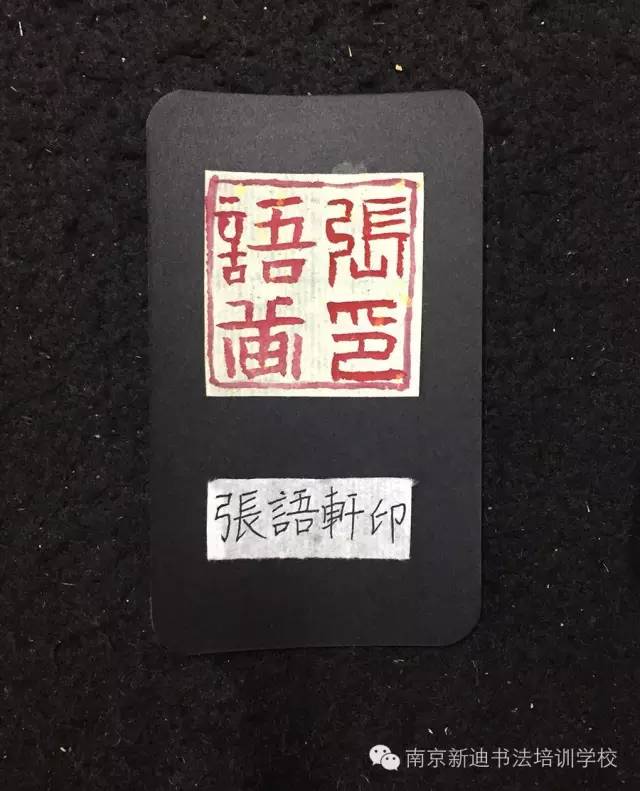 張印
語
張語軒印
南京新迪书法培训学校